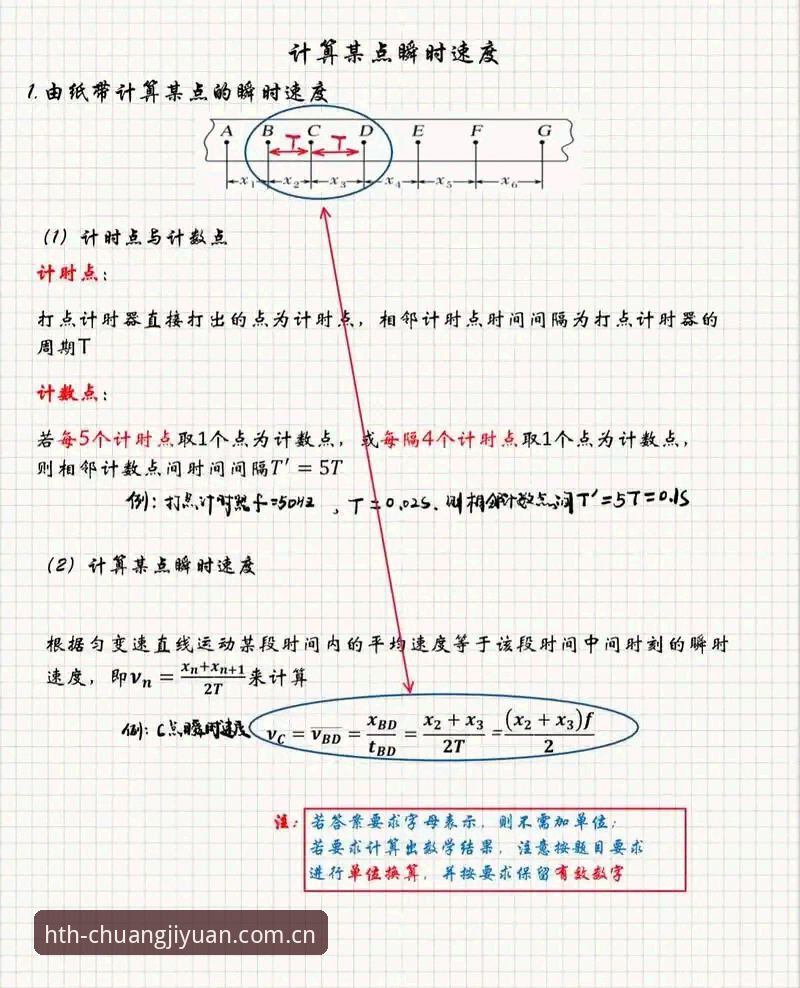 计算某点瞬时速度
1.由纸带计算某点的瞬时速度
A B C D E F G
T T
x₁ x₂ x₃ x₄ x₅ x₆
（1）计时点与计数点
计时点：
打点计时器直接打出的点为计时点，相邻计时点时间间隔为打点计时器的
周期T
计数点：
若每5个计时点取1个点为计数点，或每隔4个计时点取1个点为计数点，
则相邻计数点间时间间隔T′ = 5T
例：打点计时器f=50Hz，T=0.02s．则相邻计数点间T′=5T=0.1s
（2）计算某点瞬时速度
根据匀变速直线运动某段时间内的平均速度等于该段时间中间时刻的瞬时
速度，即vₙ = (xₙ+xₙ₊₁)/2T 来计算
例：C点瞬时速度 v_C = \overline{v_{BD}} = x_{BD}/t_{BD} = (x₂ + x₃)/2T = (x₂ + x₃)f/2
注：若答案要求字母表示，则不需加单位；
若要求计算出数学结果，注意按题目要求
进行单位换算，并按要求保留有效数字
hth-chuangjiyuan.com.cn